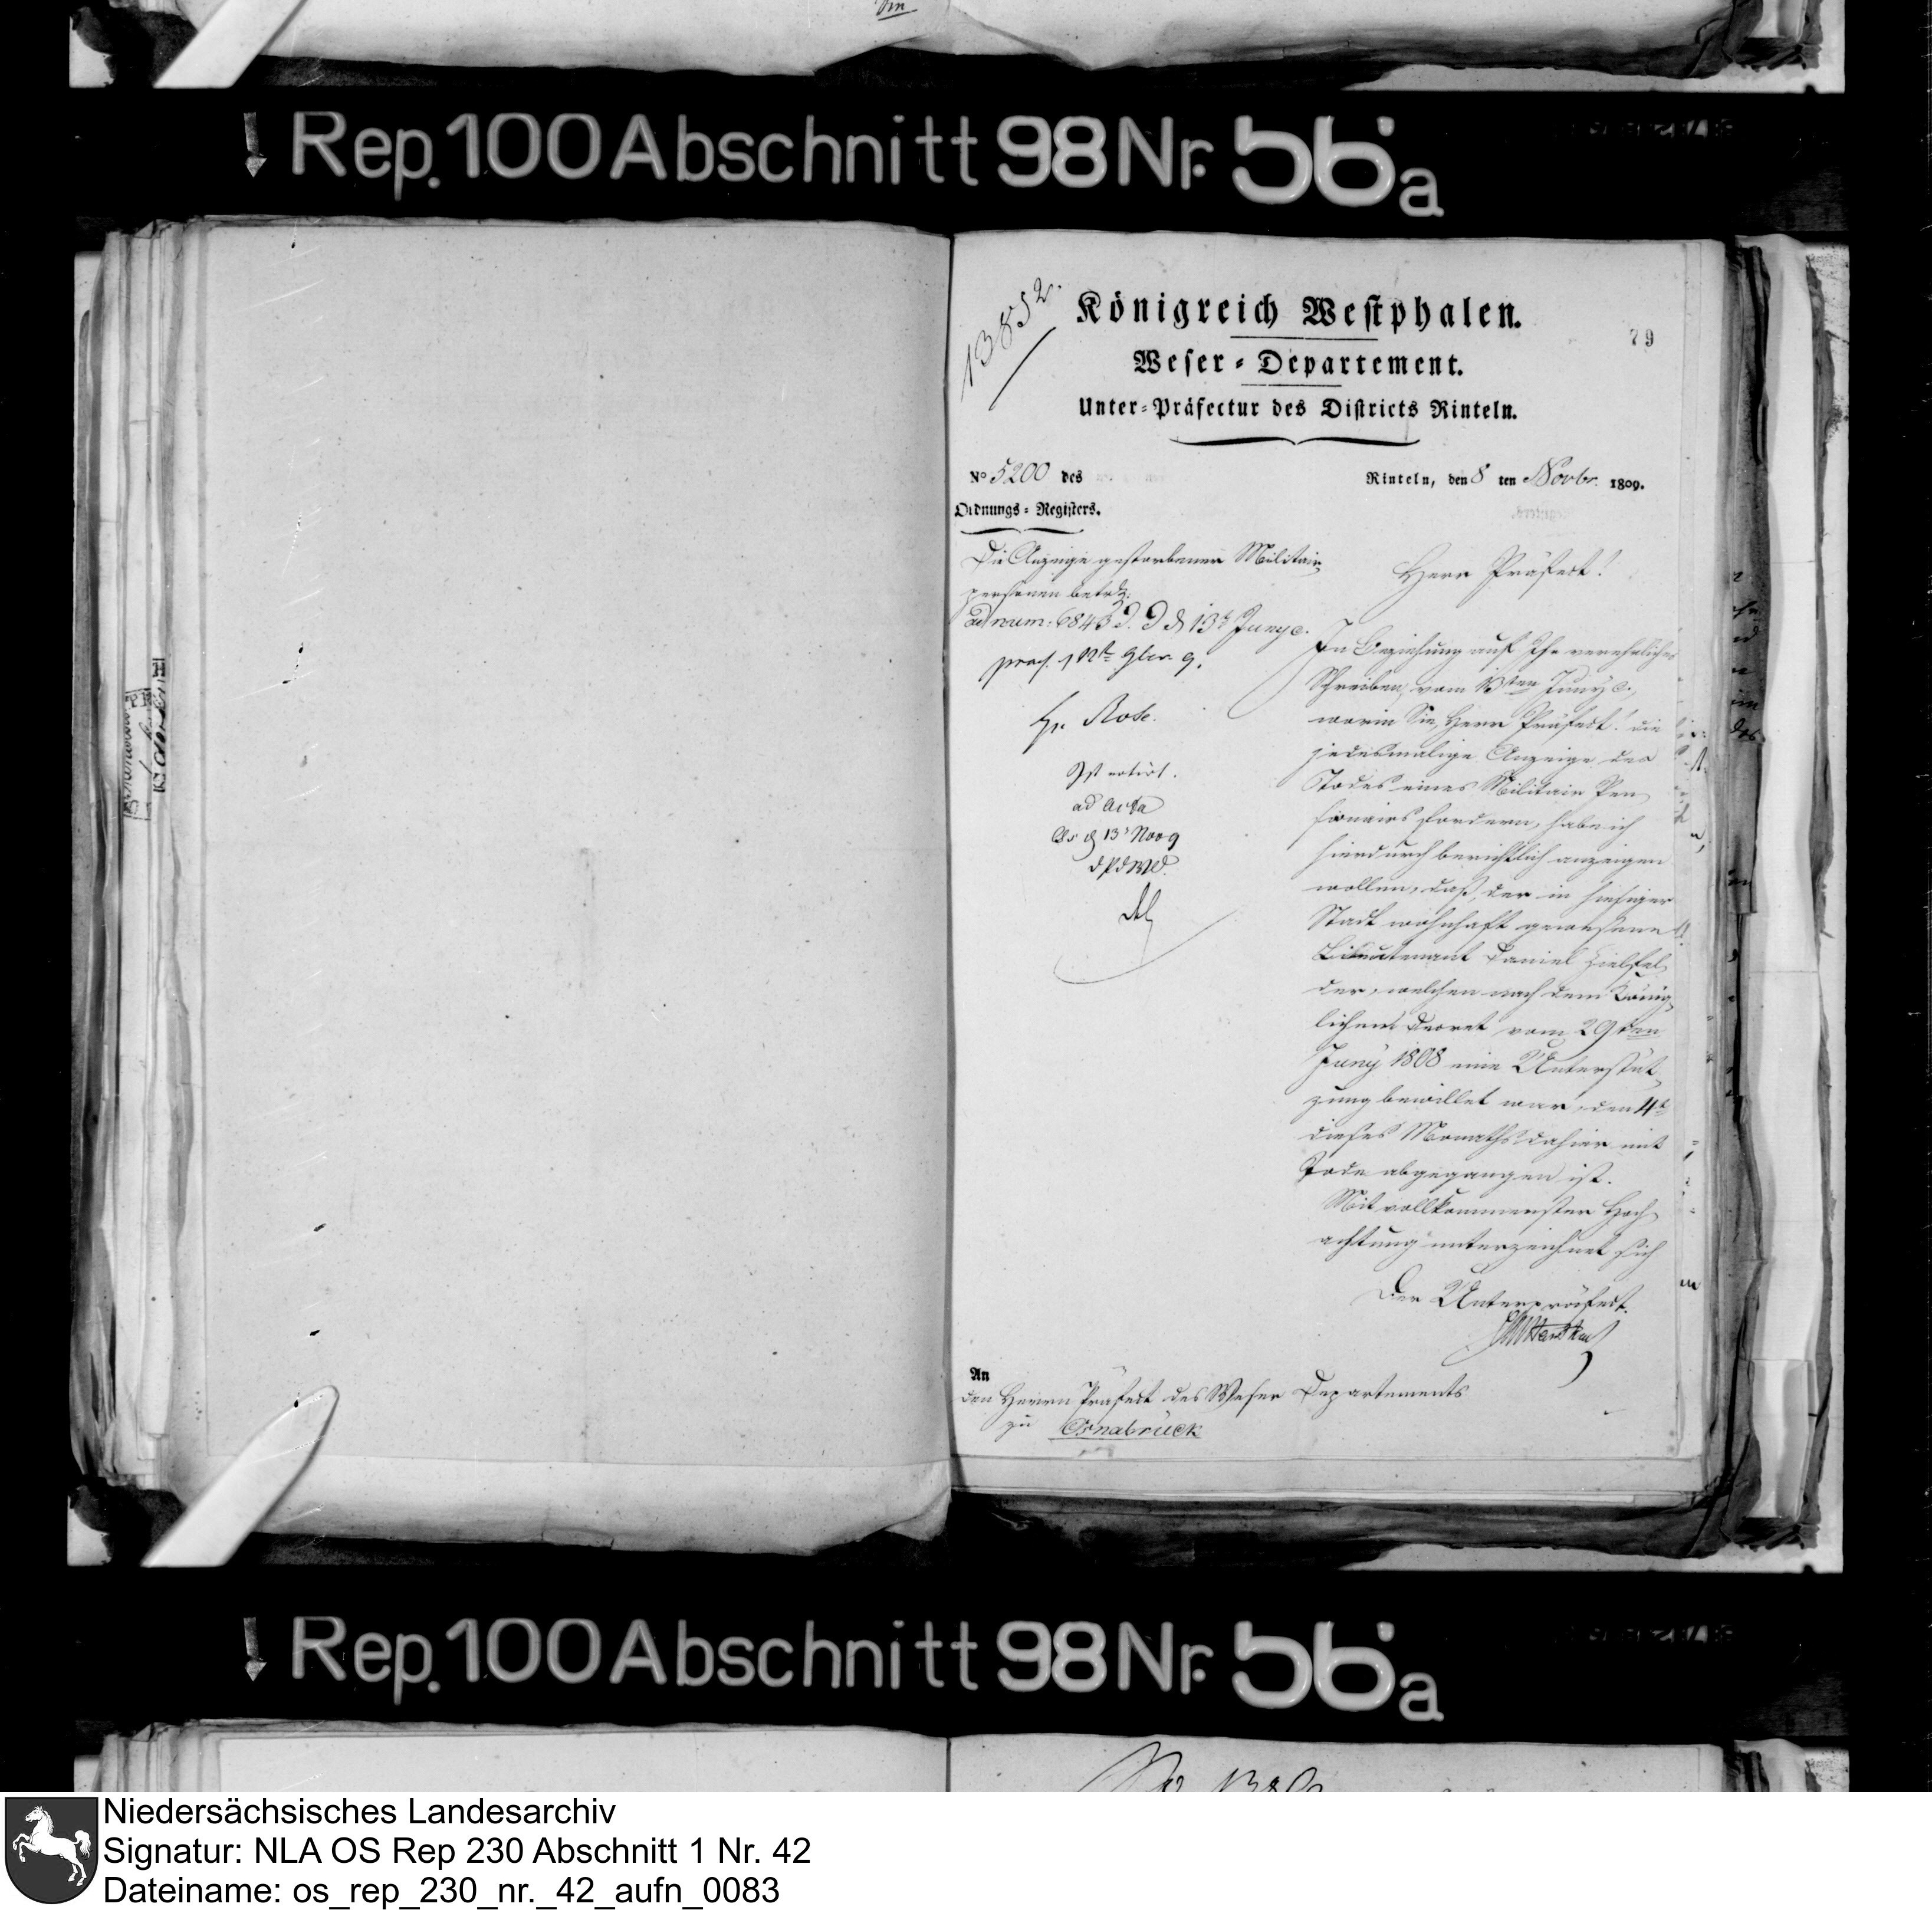 Rep. 100 Abschnitt 98 Nr. 56a
13852.
Königreich Westphalen.
79
Weser-Departement.
Unter-Präfectur des Districts Rinteln.
No 5200 des
Ordnungs-Registers.
Rinteln, den 8 ten Novbr. 1809.
Die Anzeige gestorbener Militair
personen betr.
ad num: 6843 d. d. 13t Juny c.
praes. 12t 9br 9.
Hr. Rose.
Ist notirt.
ad acta
Os d 13t Nov 9
d P d W D.
Herr Präfect!
In Beziehung auf Ihr verehrliches
Schreiben vom 13ten Juny c.,
worin Sie, Herr Präfect! die
jedesmalige Anzeige des
Todes eines Militair Pen
sionairs fordern, habe ich
hierdurch berichtlich anzeigen
wollen, daß der in hiesiger
Stadt wohnhaft gewesene
Lieutenant Daniel
der, welchen nach dem König
lichen Decret vom 29ten
Juny 1808 eine Unterstüt
zung bewillet war, den 4t
dieses Monaths dahier mit
Tode abgegangen ist.
Mit vollkommenster Hoch
achtung unterzeichnet sich
Der Unterpräfect.
An
den Herrn Präfect des Weser Departements
zu Osnabrück
Rep. 100 Abschnitt 98 Nr. 56a
Niedersächsisches Landesarchiv
Signatur: NLA OS Rep 230 Abschnitt 1 Nr. 42
Dateiname: os_rep_230_nr._42_aufn_0083